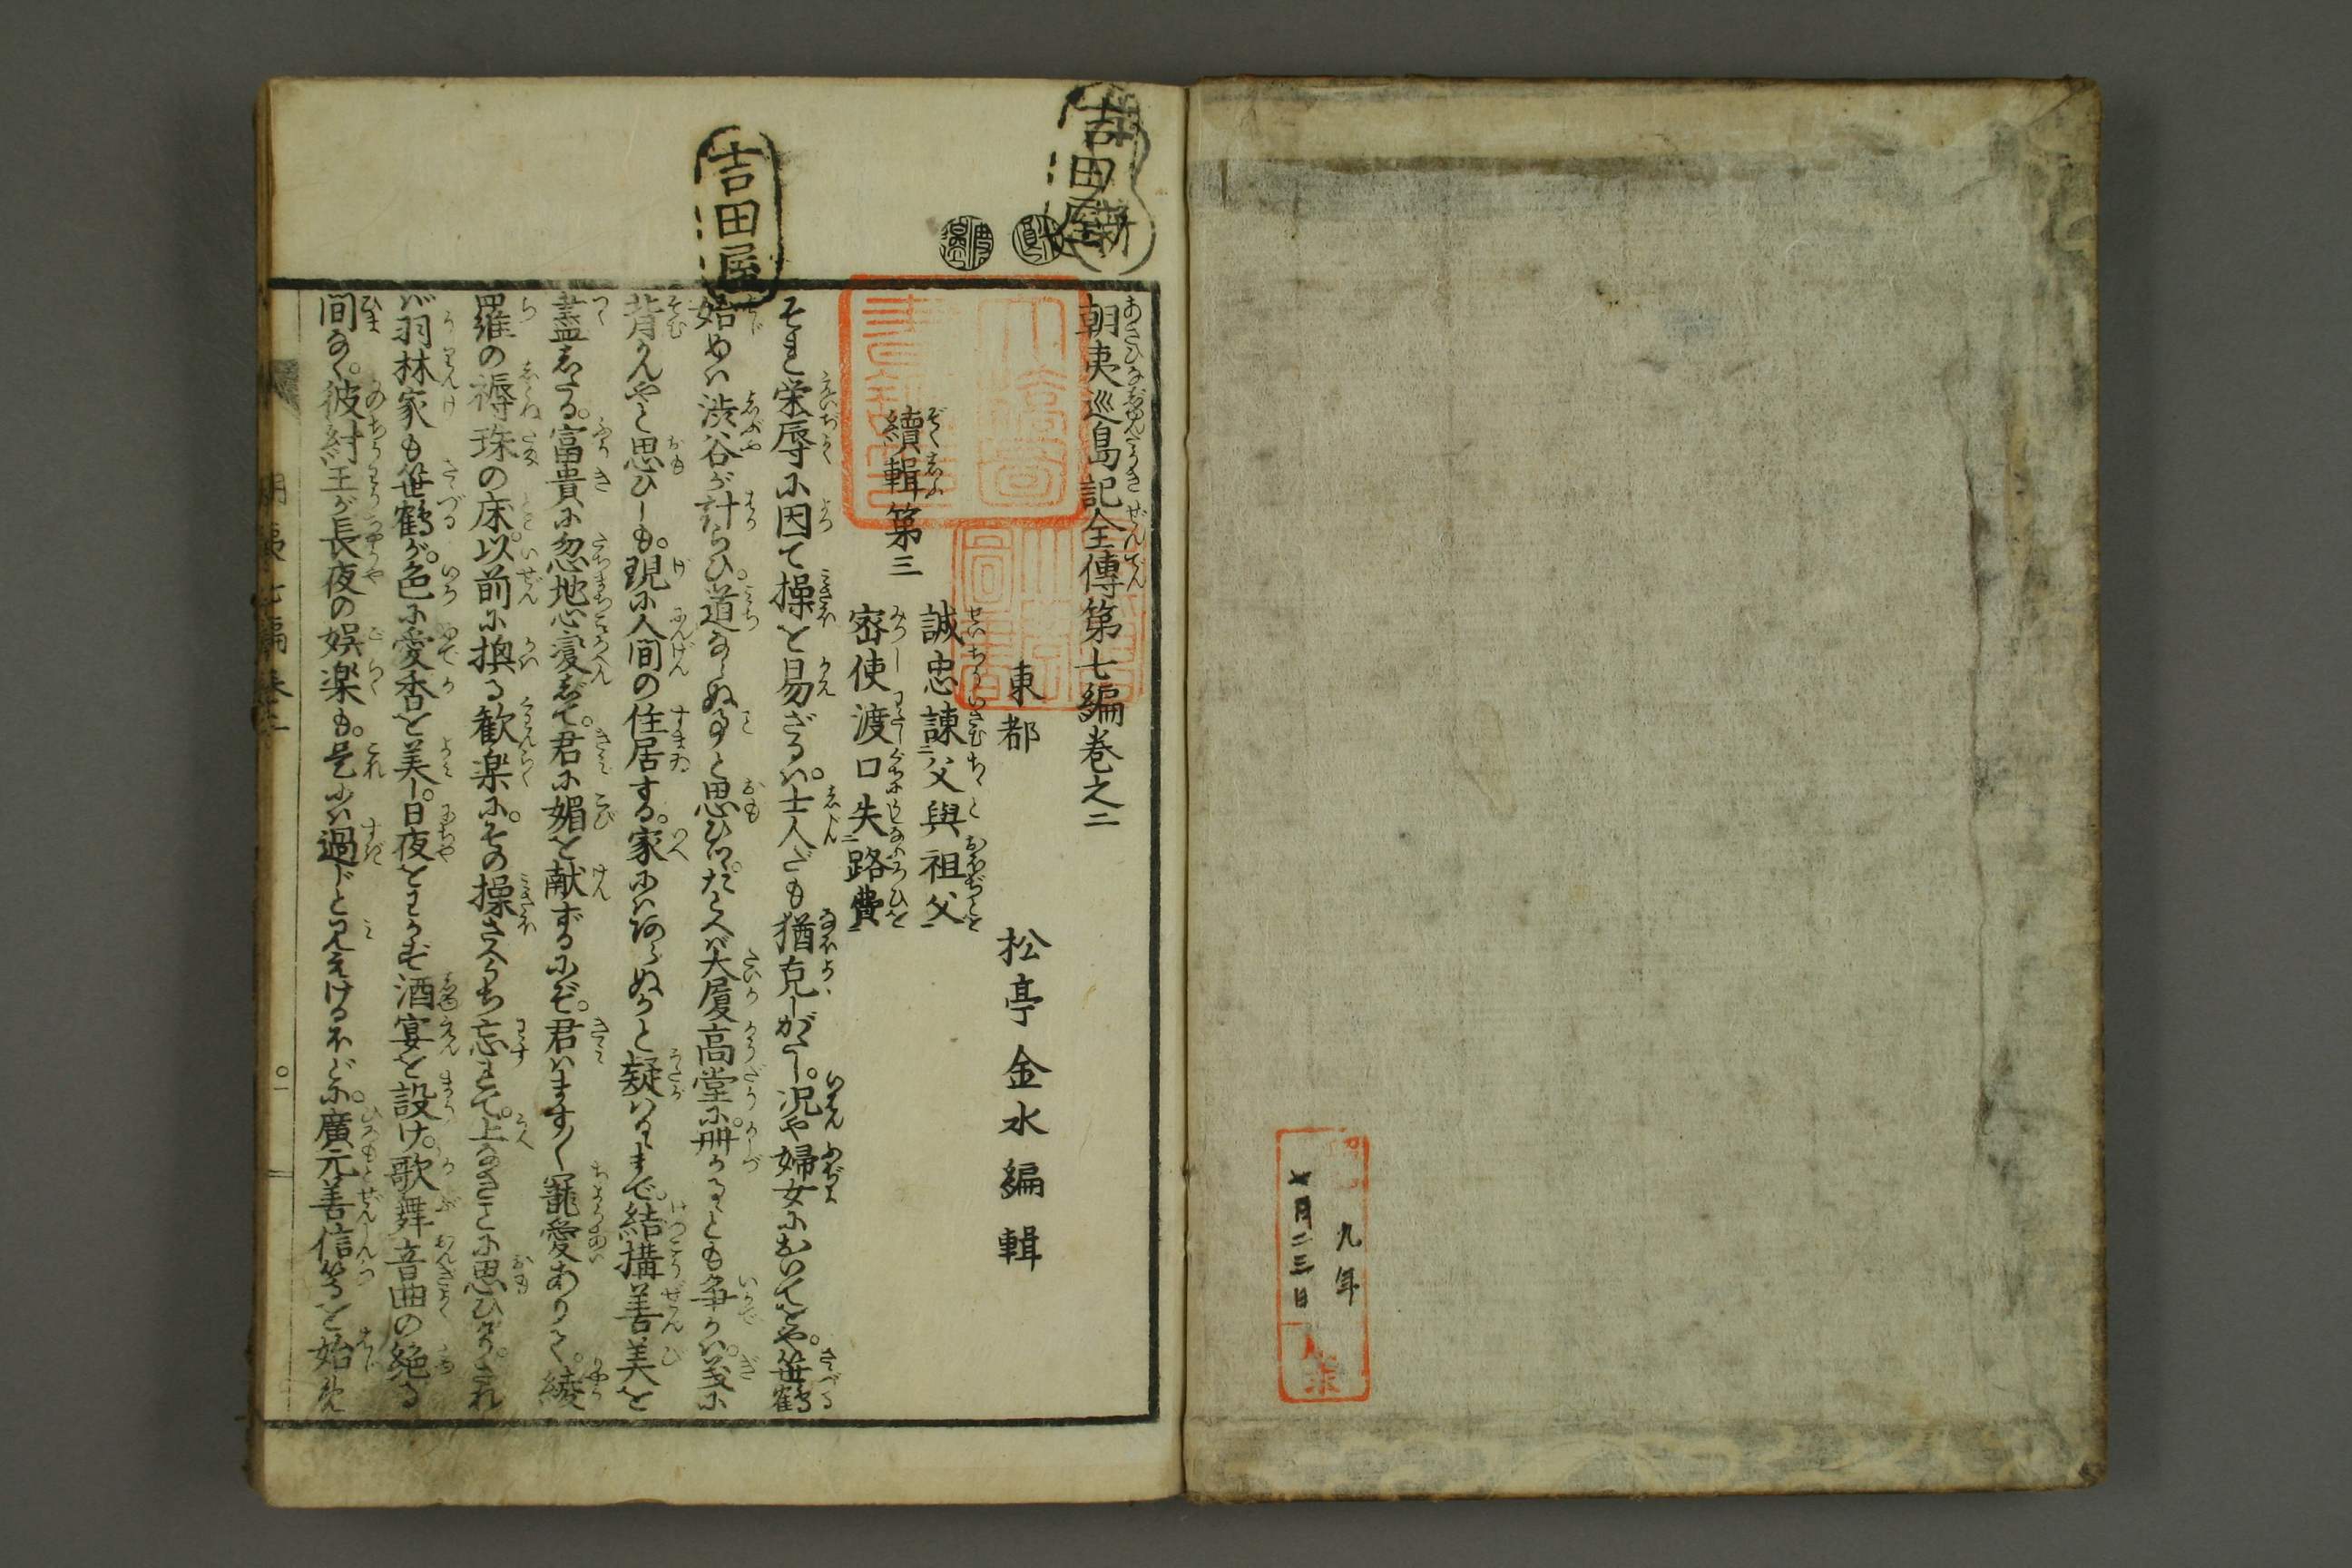 九年
七月二三日
吉田屋
朝夷巡島記全傳第七編巻之二
東都 松亭金水編輯
續輯第三
誠忠諫二父與祖父一
密使渡口失二路費一
それ栄辱に因て操を易ざるは。士人だも猶克しがたし。况や婦女においてをや。笹鶴
始めは渋谷が計らひ。道ならぬ事と思ひつ。たとへば大厦高堂に。冊かるゝとも争かは。義に
背かんやと思ひしも。現に人間の住居する。家にはあらぬかと疑はるゝまで。結搆善美を
盡したる。富貴に忽地心変じて。君に媚を献ずるにぞ。君はます〳〵寵愛ありて。綾
羅の褥珠の床。以前に換る歓楽に。その操さへうち忘れて。上なきことに思ひけり。され
ば羽林家も笹鶴が。色に愛香を美し。日夜をわかず酒宴を設け。歌舞音曲の絶る
間なく。彼紂王が長夜の娯楽も。是には過じと見えけるほどに。廣元善信等を始め
吉田屋
朝夷七編巻二
〇一